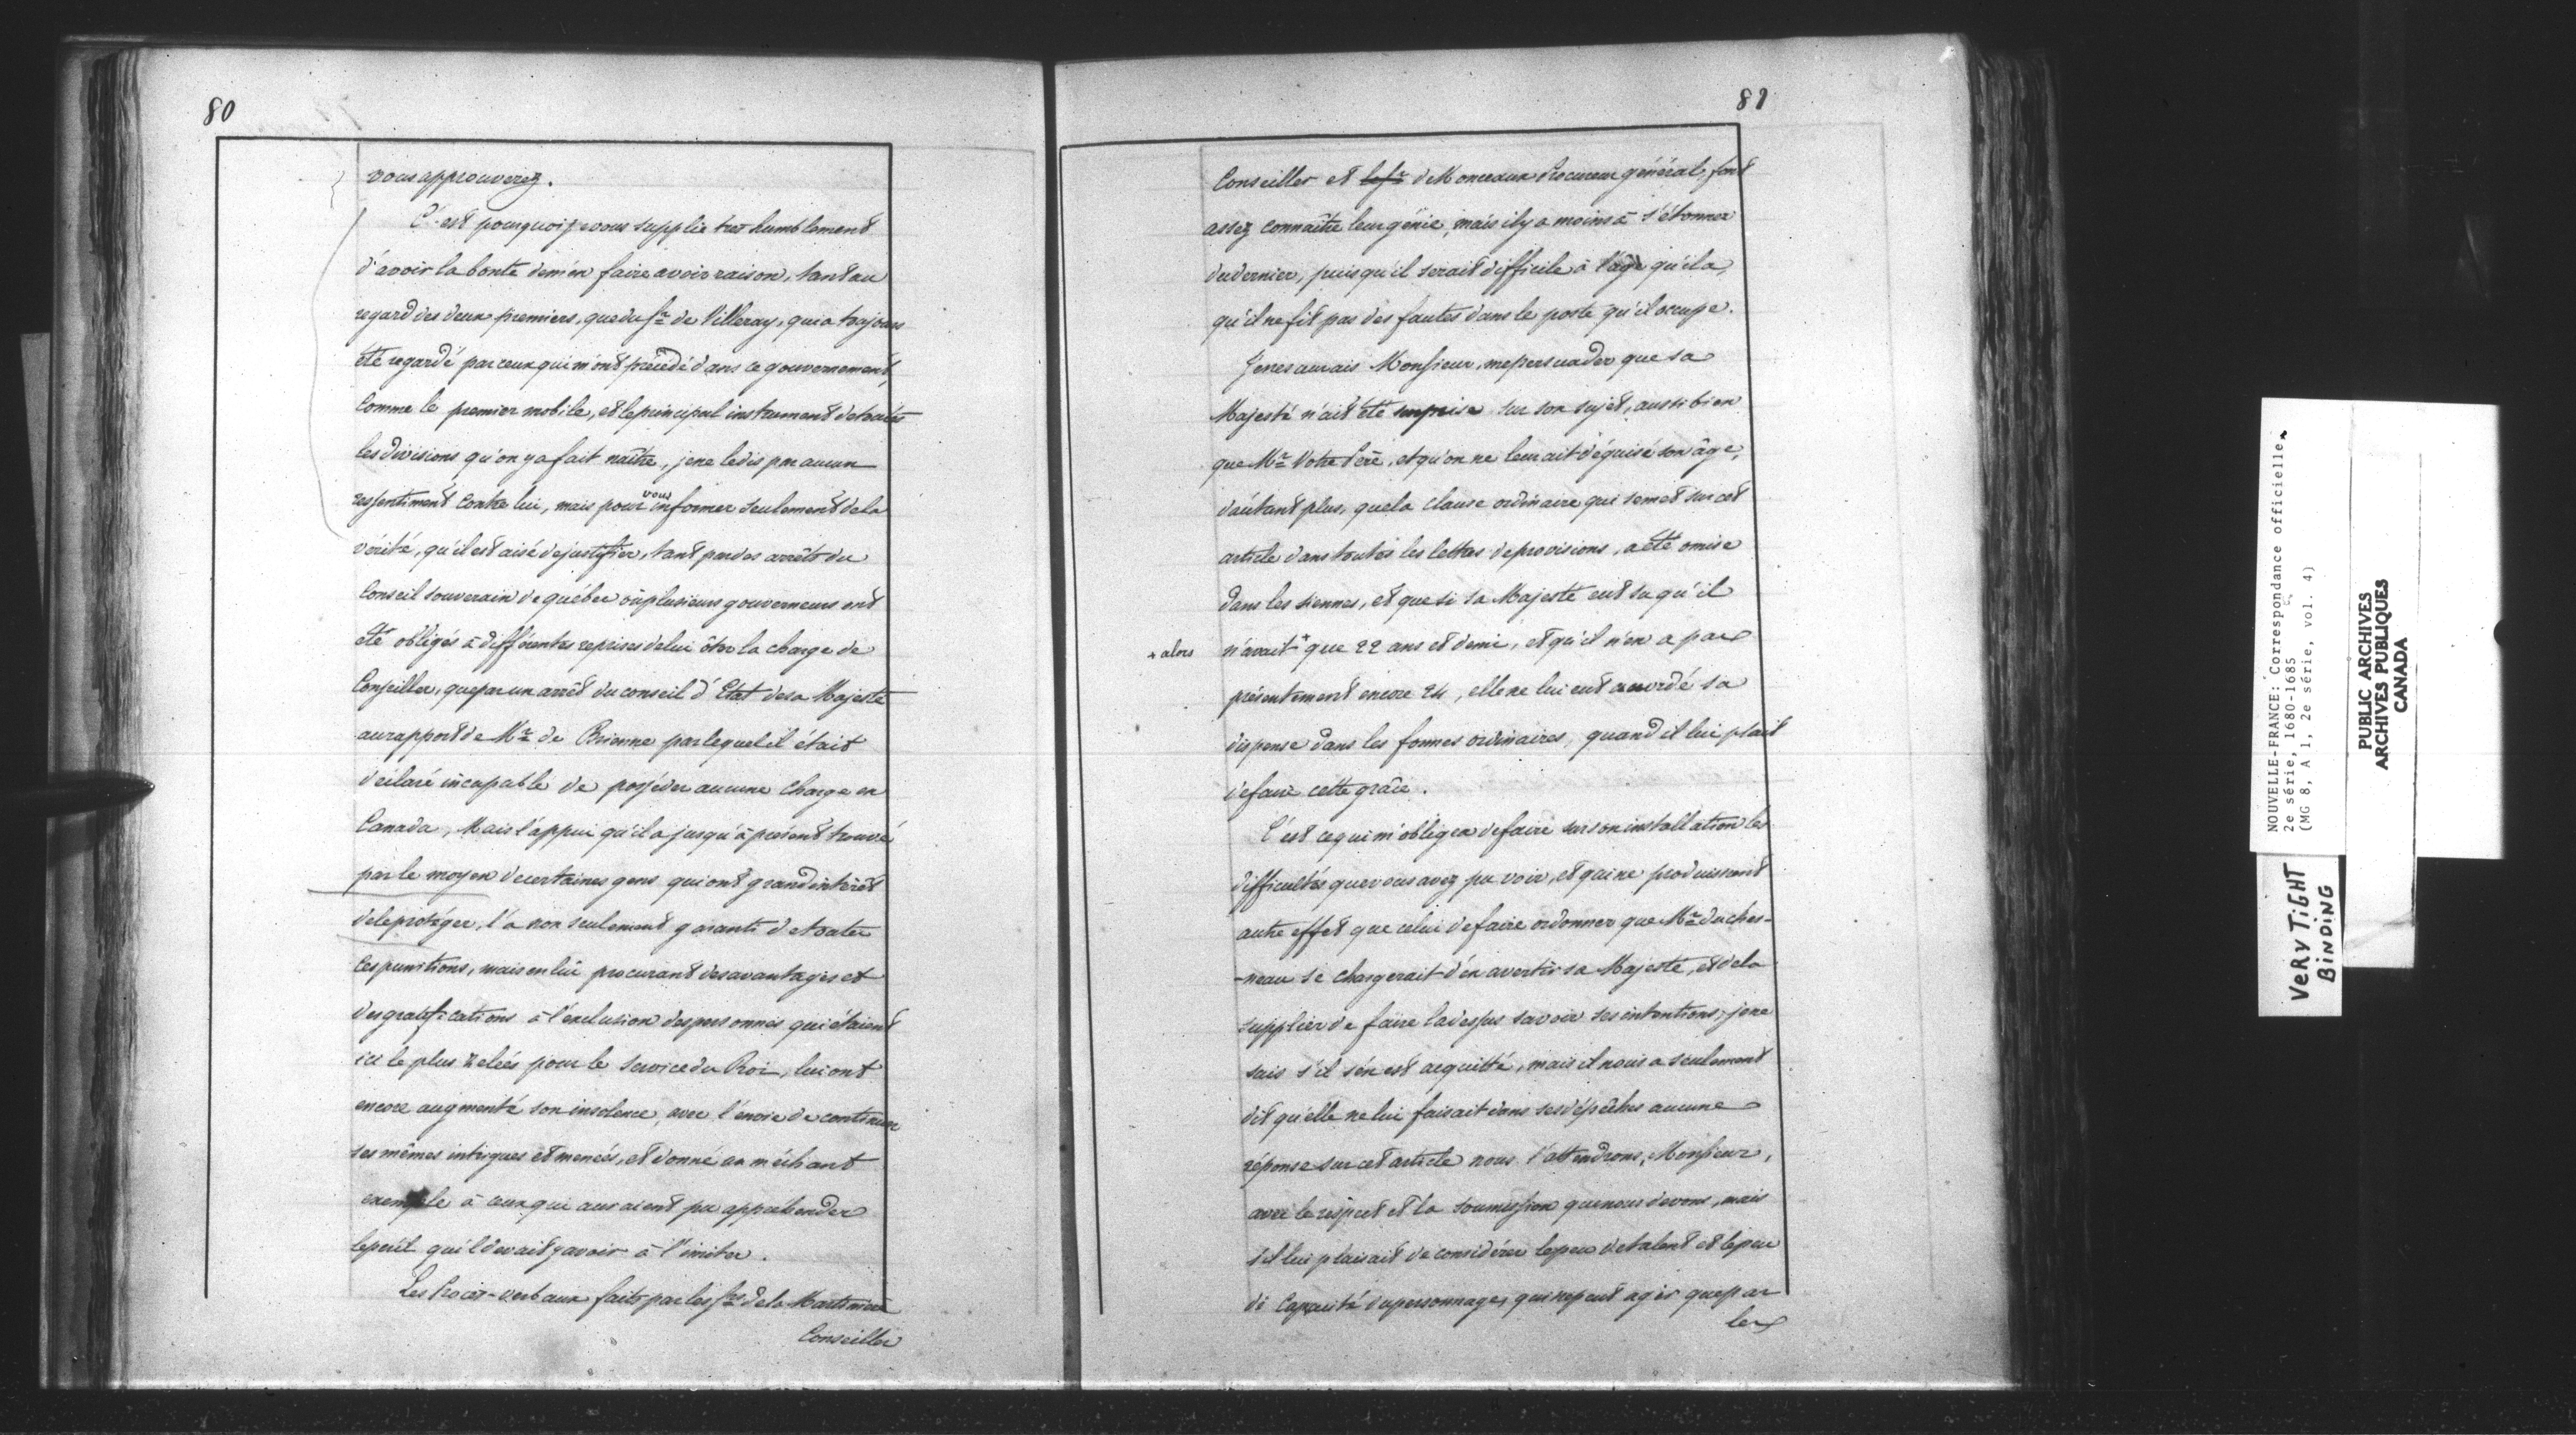 80
vous approuverez.
C'est pourquoi je vous supplie tres humblement
d'avoir la bonté de m'en faire avoir raison, tant au
regard des deux premiers, que du Sr de Villeray, qui a toujours
été regardé par ceux qui m'ont précédé dans ce gouvernement,
comme le premier mobile, et le principal instrument de toutes
les divisions qu'on y a fait naître, je ne le dis par aucun
ressentiment contre lui, mais pour vous informer seulement de la
vérité, qu'il est aisé de justifier, tant par des arrêts du
Conseil souverain de québec où plusieurs gouverneurs ont
été obligés à différentes reprises de lui ôter la charge de
Conseiller, que par un arrêt du conseil d'Etat de sa Majesté
au rapport de Mr de Brienne par lequel il était
déclaré incapable de posséder aucune charge en
Canada, Mais l'appui qu'il a jusqu'à present trouvé
par le moyen de certaines gens qui ont grand intérêt
de le protéger, l'a non seulement garanti de toutes
ces punitions, mais en lui procurant des avantages et
des gratifications à l'exclusion des personnes qui étaient
ici le plus zelées pour le service du Roi, lui ont
encore augmenté son insolence, avec l'envie de continuer
ses mêmes intrigues et menées, et donné un méchant
exemple à ceux qui auraient pu appréhender
le péril qu'il devait y avoir à l'imiter.
Les Procès-verbaux faits par les Srs de la Martinière
Conseiller
81
Conseiller et le Sr de Monceaux Procureur général, font
assez connaître leur génie, mais il y a moins à s'étonner
du dernier, puisqu'il serait difficile à l'âge qu'il a,
qu'il ne fit pas des fautes dans le poste qu'il occupe.
Je ne saurais Monsieur, me persuader que sa
Majesté n'ait été surprise sur son sujet, aussi bien
que Mr Votre Père, et qu'on ne leur ait déguisé son âge,
d'autant plus, que la clause ordinaire qui se met sur cet
article dans toutes les lettres de provisions, a été omise
dans les siennes, et que si sa Majesté eut su qu'il
n'avait + que 22 ans et demi, et qu'il n'en a pas
+ alors
présentement encore 24, elle ne lui eut accordé sa
dispense dans les formes ordinaires, quand il lui plait
de faire cette grâce.
C'est ce qui m'obligea de faire sur son installation les
difficultés que vous avez pu voir, et qui ne produisirent
autre effet que celui de faire ordonner que Mr duches-
-neau se chargerait d'en avertir sa Majesté, et de la
supplier de faire la dessus savoir ses intentions, je ne
sais s'il s'en est acquitté, mais il nous a seulement
dit qu'elle ne lui faisait dans ses dépêches aucune
réponse sur cet article nous l'attendrons, Monsieur,
avec le respect et la soumission que nous devons, mais
s'il lui plaisait de considérer le peu de talent et le peu
de capacité du personnage, qui ne peut agir que par
les
NOUVELLE-FRANCE: Correspondance officielle,
2e série, 1680-1685
(MG 8, A 1, 2e série, vol. 4)
VERY TIGHT
BINDING
PUBLIC ARCHIVES
ARCHIVES PUBLIQUES
CANADA